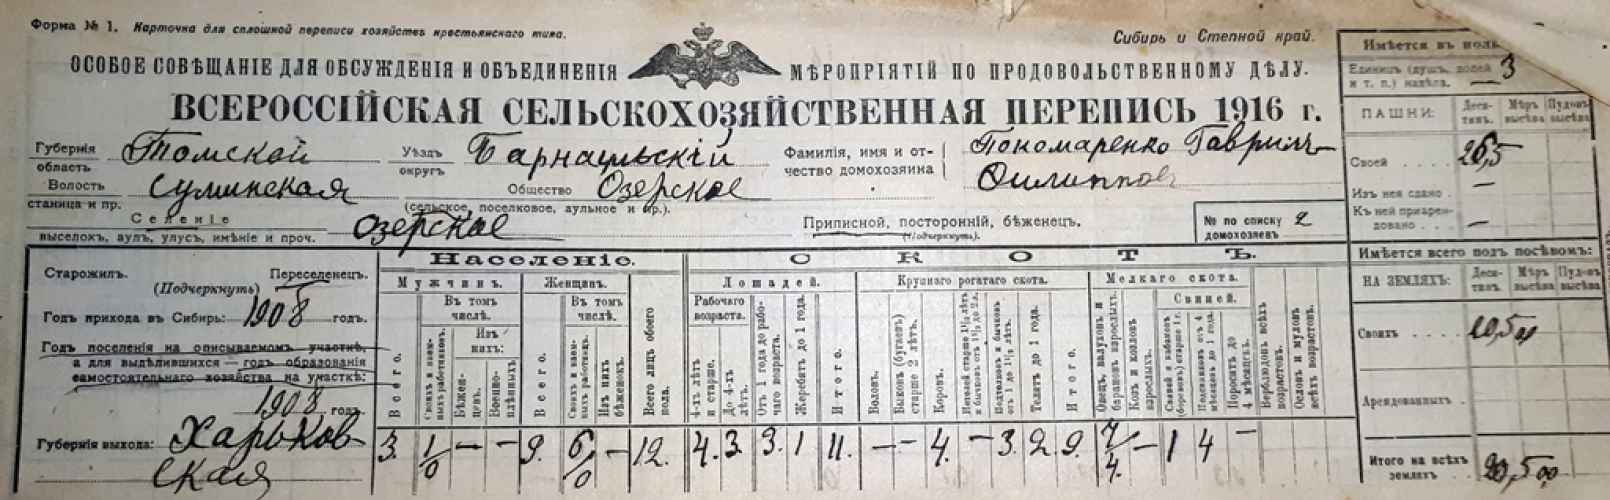 Форма № 1. Карточка для сплошной переписи хозяйствъ крестьянскаго типа.
Сибирь и Степной край.
ОСОБОЕ СОВѢЩАНІЕ ДЛЯ ОБСУЖДЕНІЯ И ОБЪЕДИНЕНІЯ МѢРОПРІЯТІЙ ПО ПРОДОВОЛЬСТВЕННОМУ ДѢЛУ.
ВСЕРОССІЙСКАЯ СЕЛЬСКОХОЗЯЙСТВЕННАЯ ПЕРЕПИСЬ 1916 г.
Губернія область Томской Уѣздъ округъ Барнаульскій Фамилія, имя и отчество домохозяина Пономаренко Гаврилъ
Волость станица и пр. Суминская Общество Озерское
(сельское, поселковое, аульное и пр.).
Селеніе Озерское
выселокъ, аулъ, улусъ, имѣніе и проч.
Приписной, посторонній, бѣженецъ.
(Подчеркнуть).
№ по списку домохозяевъ 2
Старожилъ. Переселенецъ.
(Подчеркнуть)
Годъ прихода въ Сибирь: 1908 годъ.
Годъ поселенія на описываемомъ участкѣ,
а для выдѣлившихся—годъ образованія
самостоятельнаго хозяйства на участкѣ:
1908 годъ.
Губернія выхода: Харьков-
ская
Населеніе.
Мужчинъ.
Всего.
Въ томъ числѣ.
Изъ нихъ:
Бѣжен-
цевъ.
Военно-
плѣнныхъ.
Женщинъ.
Всего.
Въ томъ числѣ.
Изъ нихъ бѣженокъ.
Всего лицъ обоего пола.
3. 1/0 — — 9. 6/0 — 12.
СКОТЪ.
Лошадей.
Рабочаго возраста.
4-хъ лѣтъ и старше.
До 4-хъ лѣтъ.
Отъ 1 года до рабо-
чаго возраста.
Жеребятъ до 1 года.
Итого.
Крупнаго рогатаго скота.
Воловъ.
Быковъ (бугаевъ)
старше 2 лѣтъ.
Коровъ.
Нетелей старше 1½ лѣтъ
и бычковъ отъ 1½ до 2 л.
Подтелковъ и бычковъ
отъ 1 до 1½ лѣтъ.
Телятъ до 1 года.
Итого.
Мелкаго скота.
Овецъ, валуховъ и
барановъ взрослыхъ.
Козъ и козловъ
взрослыхъ.
Свиней.
Поросятъ до
4 мѣсяцевъ.
Верблюдовъ всѣхъ
возрастовъ.
Ословъ и муловъ
всѣхъ возрастовъ.
4. 3. 3. 1 11. — — 4. — 3. 2. 9. 7/4. — 1 4 —
Имѣется въ
Единицъ (душъ, долей
и т. п.) надѣла. 3
ПАШНИ: Деся-
тинъ. Мѣръ
высѣва Пудовъ
высѣва
Своей 26,5
Изъ нея сдано —
Къ ней приарен-
довано —
Имѣется всего подъ посѣвомъ:
НА ЗЕМЛЯХЪ: Деся-
тинъ. Мѣръ
высѣва Пудовъ
высѣва
Своихъ
Арендованныхъ
Итого на всѣхъ
земляхъ